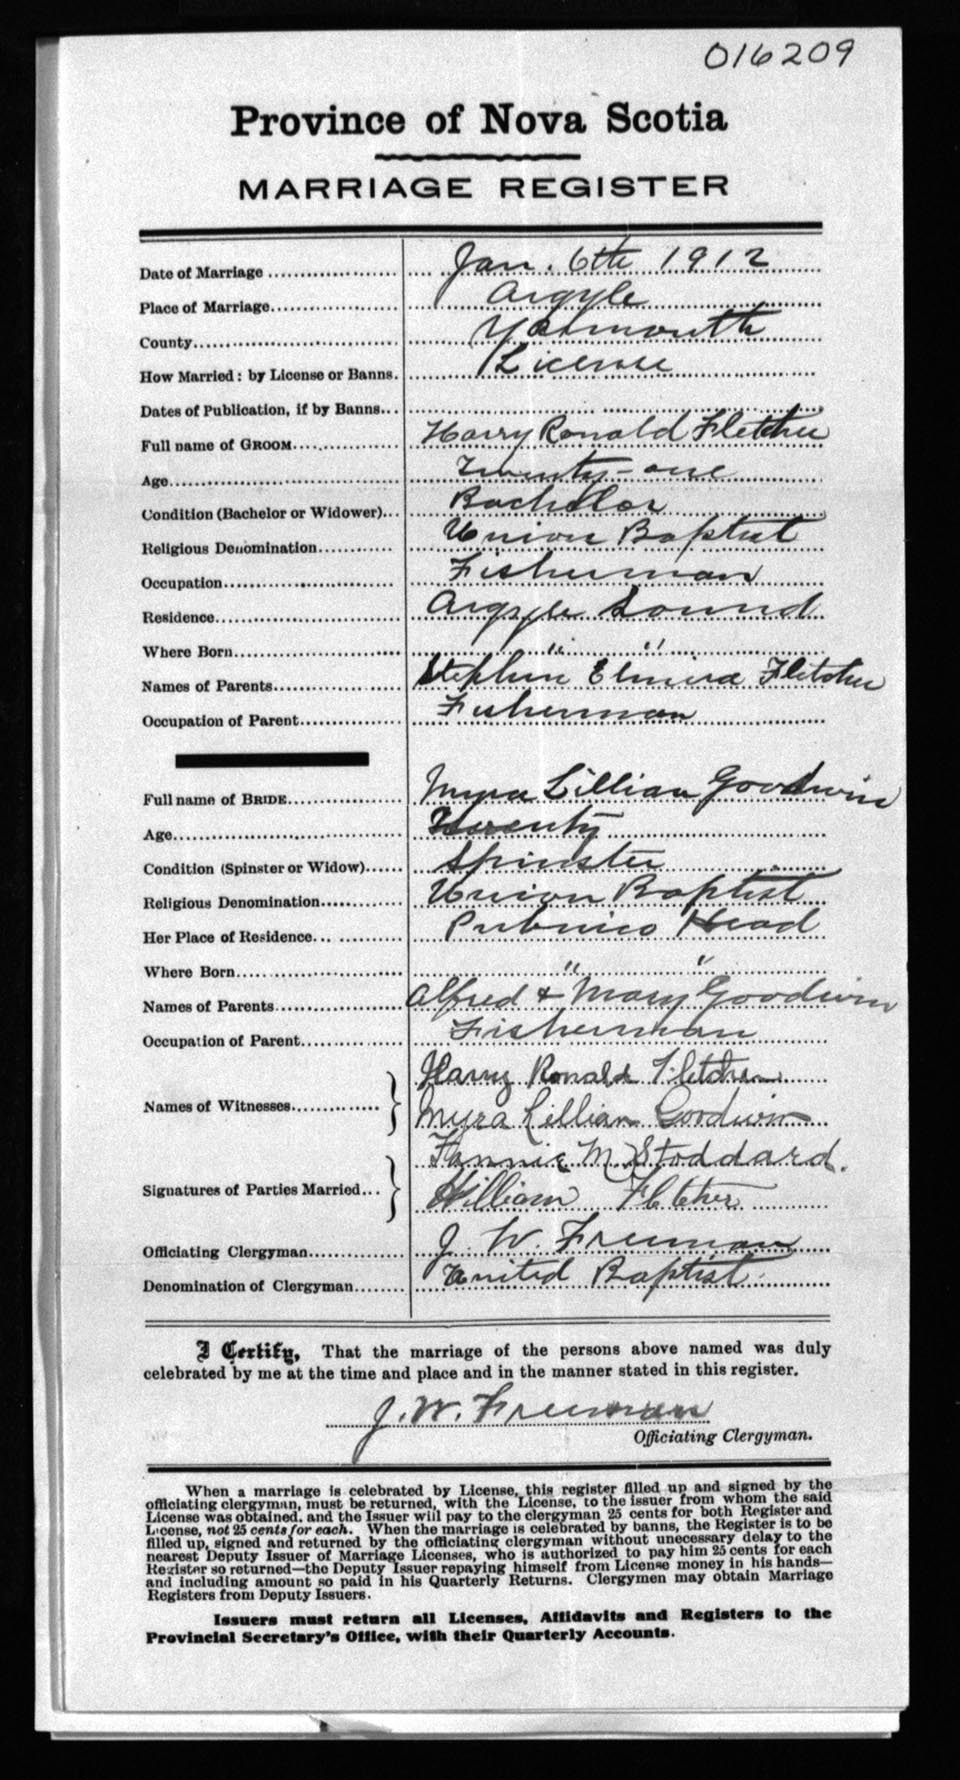 016209
Province of Nova Scotia
MARRIAGE REGISTER
Date of Marriage .................... Jan. 6th 1912
Place of Marriage.................... Argyle
County.................... Yarmouth
How Married: by License or Banns. License
Dates of Publication, if by Banns...
Full name of GROOM.................... Harry Ronald Fletcher
Age.................... Twenty-one
Condition (Bachelor or Widower)... Bachelor
Religious Denomination............ Union Baptist
Occupation.................... Fisherman
Residence.................... Argyle Sound
Where Born.................... " "
Names of Parents.................... Stephen Elmira Fletcher
Occupation of Parent............... Fisherman
Full name of BRIDE.................... Myra Lillian Goodwin
Age.................... Twenty
Condition (Spinster or Widow)...... Spinster
Religious Denomination............ Union Baptist
Her Place of Residence... ............ Pubnico Head
Where Born.................... " "
Names of Parents.................... Alfred & Mary Goodwin
Occupation of Parent............... Fisherman
Harry Ronald Fletcher
Names of Witnesses............... } Myra Lillian Goodwin
Fannie M Stoddard.
Signatures of Parties Married... } William Fletcher
Officiating Clergyman............... J. W. Freeman
Denomination of Clergyman........ United Baptist.
I Certify, That the marriage of the persons above named was duly
celebrated by me at the time and place and in the manner stated in this register.
J. W. Freeman
Officiating Clergyman.
When a marriage is celebrated by License, this register filled up and signed by the
officiating clergyman, must be returned, with the License, to the issuer from whom the said
License was obtained, and the Issuer will pay to the clergyman 25 cents for both Register and
License, not 25 cents for each. When the marriage is celebrated by banns, the Register is to be
filled up, signed and returned by the officiating clergyman without unnecessary delay to the
nearest Deputy Issuer of Marriage Licenses, who is authorized to pay him 25 cents for each
Register so returned—the Deputy Issuer repaying himself from License money in his hands—
and including amount so paid in his Quarterly Returns. Clergymen may obtain Marriage
Registers from Deputy Issuers.
Issuers must return all Licenses, Affidavits and Registers to the
Provincial Secretary's Office, with their Quarterly Accounts.